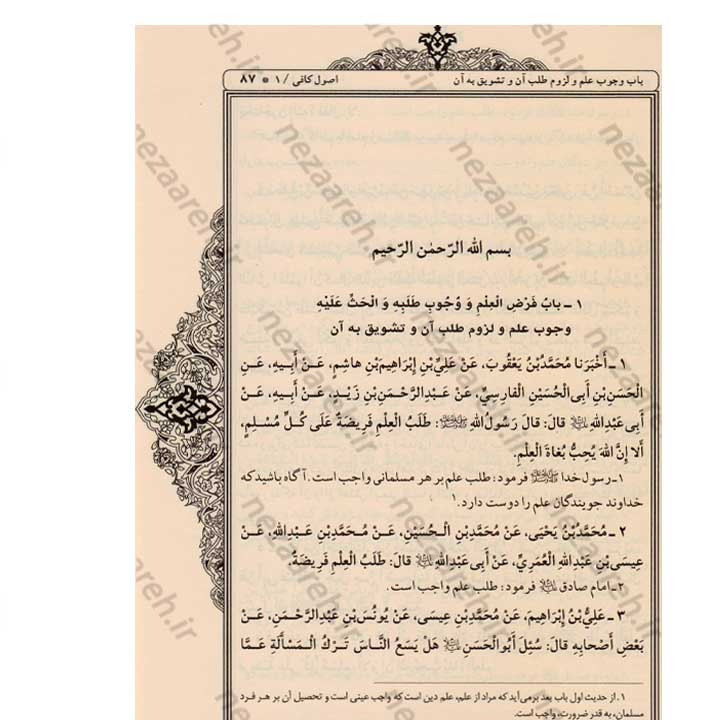 باب وجوب علم و لزوم طلب آن و تشویق به آن
اصول کافی / ۱ * ۸۷
بسم الله الرّحمٰن الرّحیم
۱ ـ بابُ فَرْضِ الْعِلْمِ وَ وُجُوبِ طَلَبِهِ وَ الْحَثِّ عَلَيْهِ
وجوب علم و لزوم طلب آن و تشویق به آن
۱ ـ أَخْبَرَنا مُحَمَّدُبْنُ يَعْقُوبَ، عَنْ عَلِيِّ‌بْنِ إِبْراهِيمَ‌بْنِ هاشِمٍ، عَنْ أَبِيهِ، عَنِ
الْحَسَنِ‌بْنِ أَبِى‌الْحُسَيْنِ الْفارِسِيِّ، عَنْ عَبْدِالرَّحْمٰنِ‌بْنِ زَيْدٍ، عَنْ أَبِيهِ، عَنْ
أَبِى‌عَبْدِاللهِ ﷷ قالَ: قالَ رَسُولُ‌اللهِ ﷺ: طَلَبُ الْعِلْمِ فَرِيضَةٌ عَلَى كُلِّ مُسْلِمٍ،
أَلا إِنَّ اللهَ يُحِبُّ بُغاةَ الْعِلْمِ.
۱ـ رسول خدا ﷺ فرمود: طلب علم بر هر مسلمانی واجب است. آگاه باشید که
خداوند جویندگان علم را دوست دارد.۱
۲ ـ مُحَمَّدُبْنُ يَحْيَى، عَنْ مُحَمَّدِبْنِ الْحُسَيْنِ، عَنْ مُحَمَّدِبْنِ عَبْدِاللهِ، عَنْ
عِيسَى‌بْنِ عَبْدِاللهِ الْعُمَرِيِّ، عَنْ أَبِى عَبْدِاللهِ قالَ: طَلَبُ الْعِلْمِ فَرِيضَةٌ.
۲ـ امام صادق فرمود: طلب علم واجب است.
۳ ـ عَلِيُّ‌بْنُ إِبْراهِيمَ، عَنْ مُحَمَّدِبْنِ عِيسَى، عَنْ يُونُسَ‌بْنِ عَبْدِالرَّحْمٰنِ، عَنْ
بَعْضِ أَصْحابِهِ قالَ: سُئِلَ أَبُوالْحَسَنِ هَلْ يَسَعُ النَّاسَ تَرْكُ الْمَسْأَلَةِ عَمَّا
۱. از حدیث اول باب بعد برمی‌آید که مراد از علم، علم دین است که واجب عینی است و تحصیل آن بر هر فرد
مسلمان، به قدر ضرورت، واجب است.
nezaareh.ir